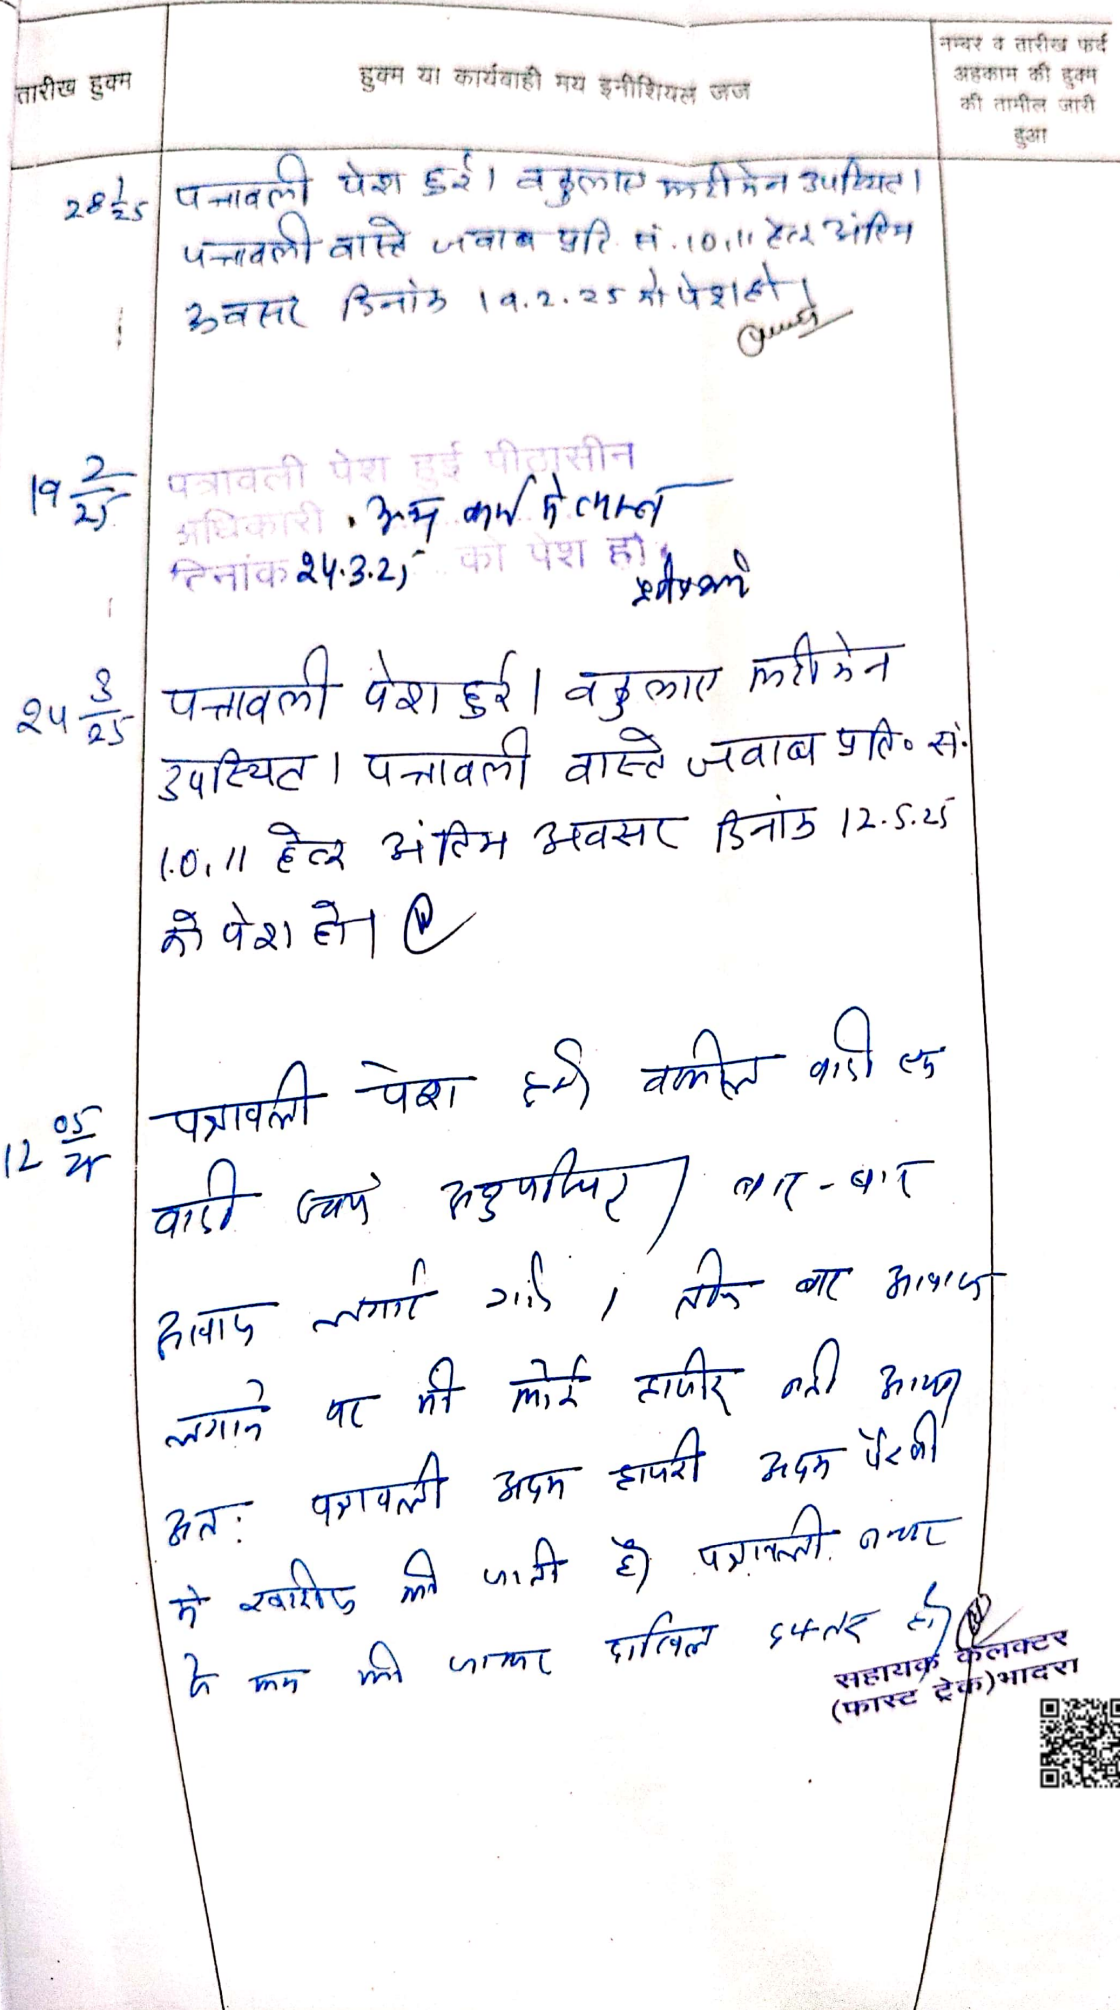 तारीख हुक्म
हुक्म या कार्यवाही मय इनीशियल जज
नम्बर व तारीख फर्द
अहकाम की हुक्म
की तामील जारी
हुआ
28 1/25 पत्रावली पेश हुई। वकुलाए फरीकेन उपस्थित।
पत्रावली वास्ते जवाब प्रति सं. 10,11 हेतु अंतिम
अवसर दिनांक 19.2.25 को पेश हो।
19 2/25 पत्रावली पेश हुई पीठासीन
अधिकारी अन्य कार्य में व्यस्त
दिनांक 24.3.25 को पेश हो
24 3/25 पत्रावली पेश हुई। वकुलाए फरीकेन
उपस्थित। पत्रावली वास्ते जवाब प्रति० सं.
10,11 हेतु अंतिम अवसर दिनांक 12.5.25
को पेश हो।
12 05/25 पत्रावली पेश हुई वकील वादी एवं
वादी स्वयं अनुपस्थित। बार-बार
आवाज लगाई गई। बार आवाज
लगाने पर भी कोई हाजिर नही आया
अतः पत्रावली अदम हाजरी अदम पैरवी
मे खारीज की जाती है। पत्रावली नम्बर
से कम की जाकर दाखिल दफ्तर हो।
सहायक कलक्टर
(फास्ट ट्रेक) भादरा